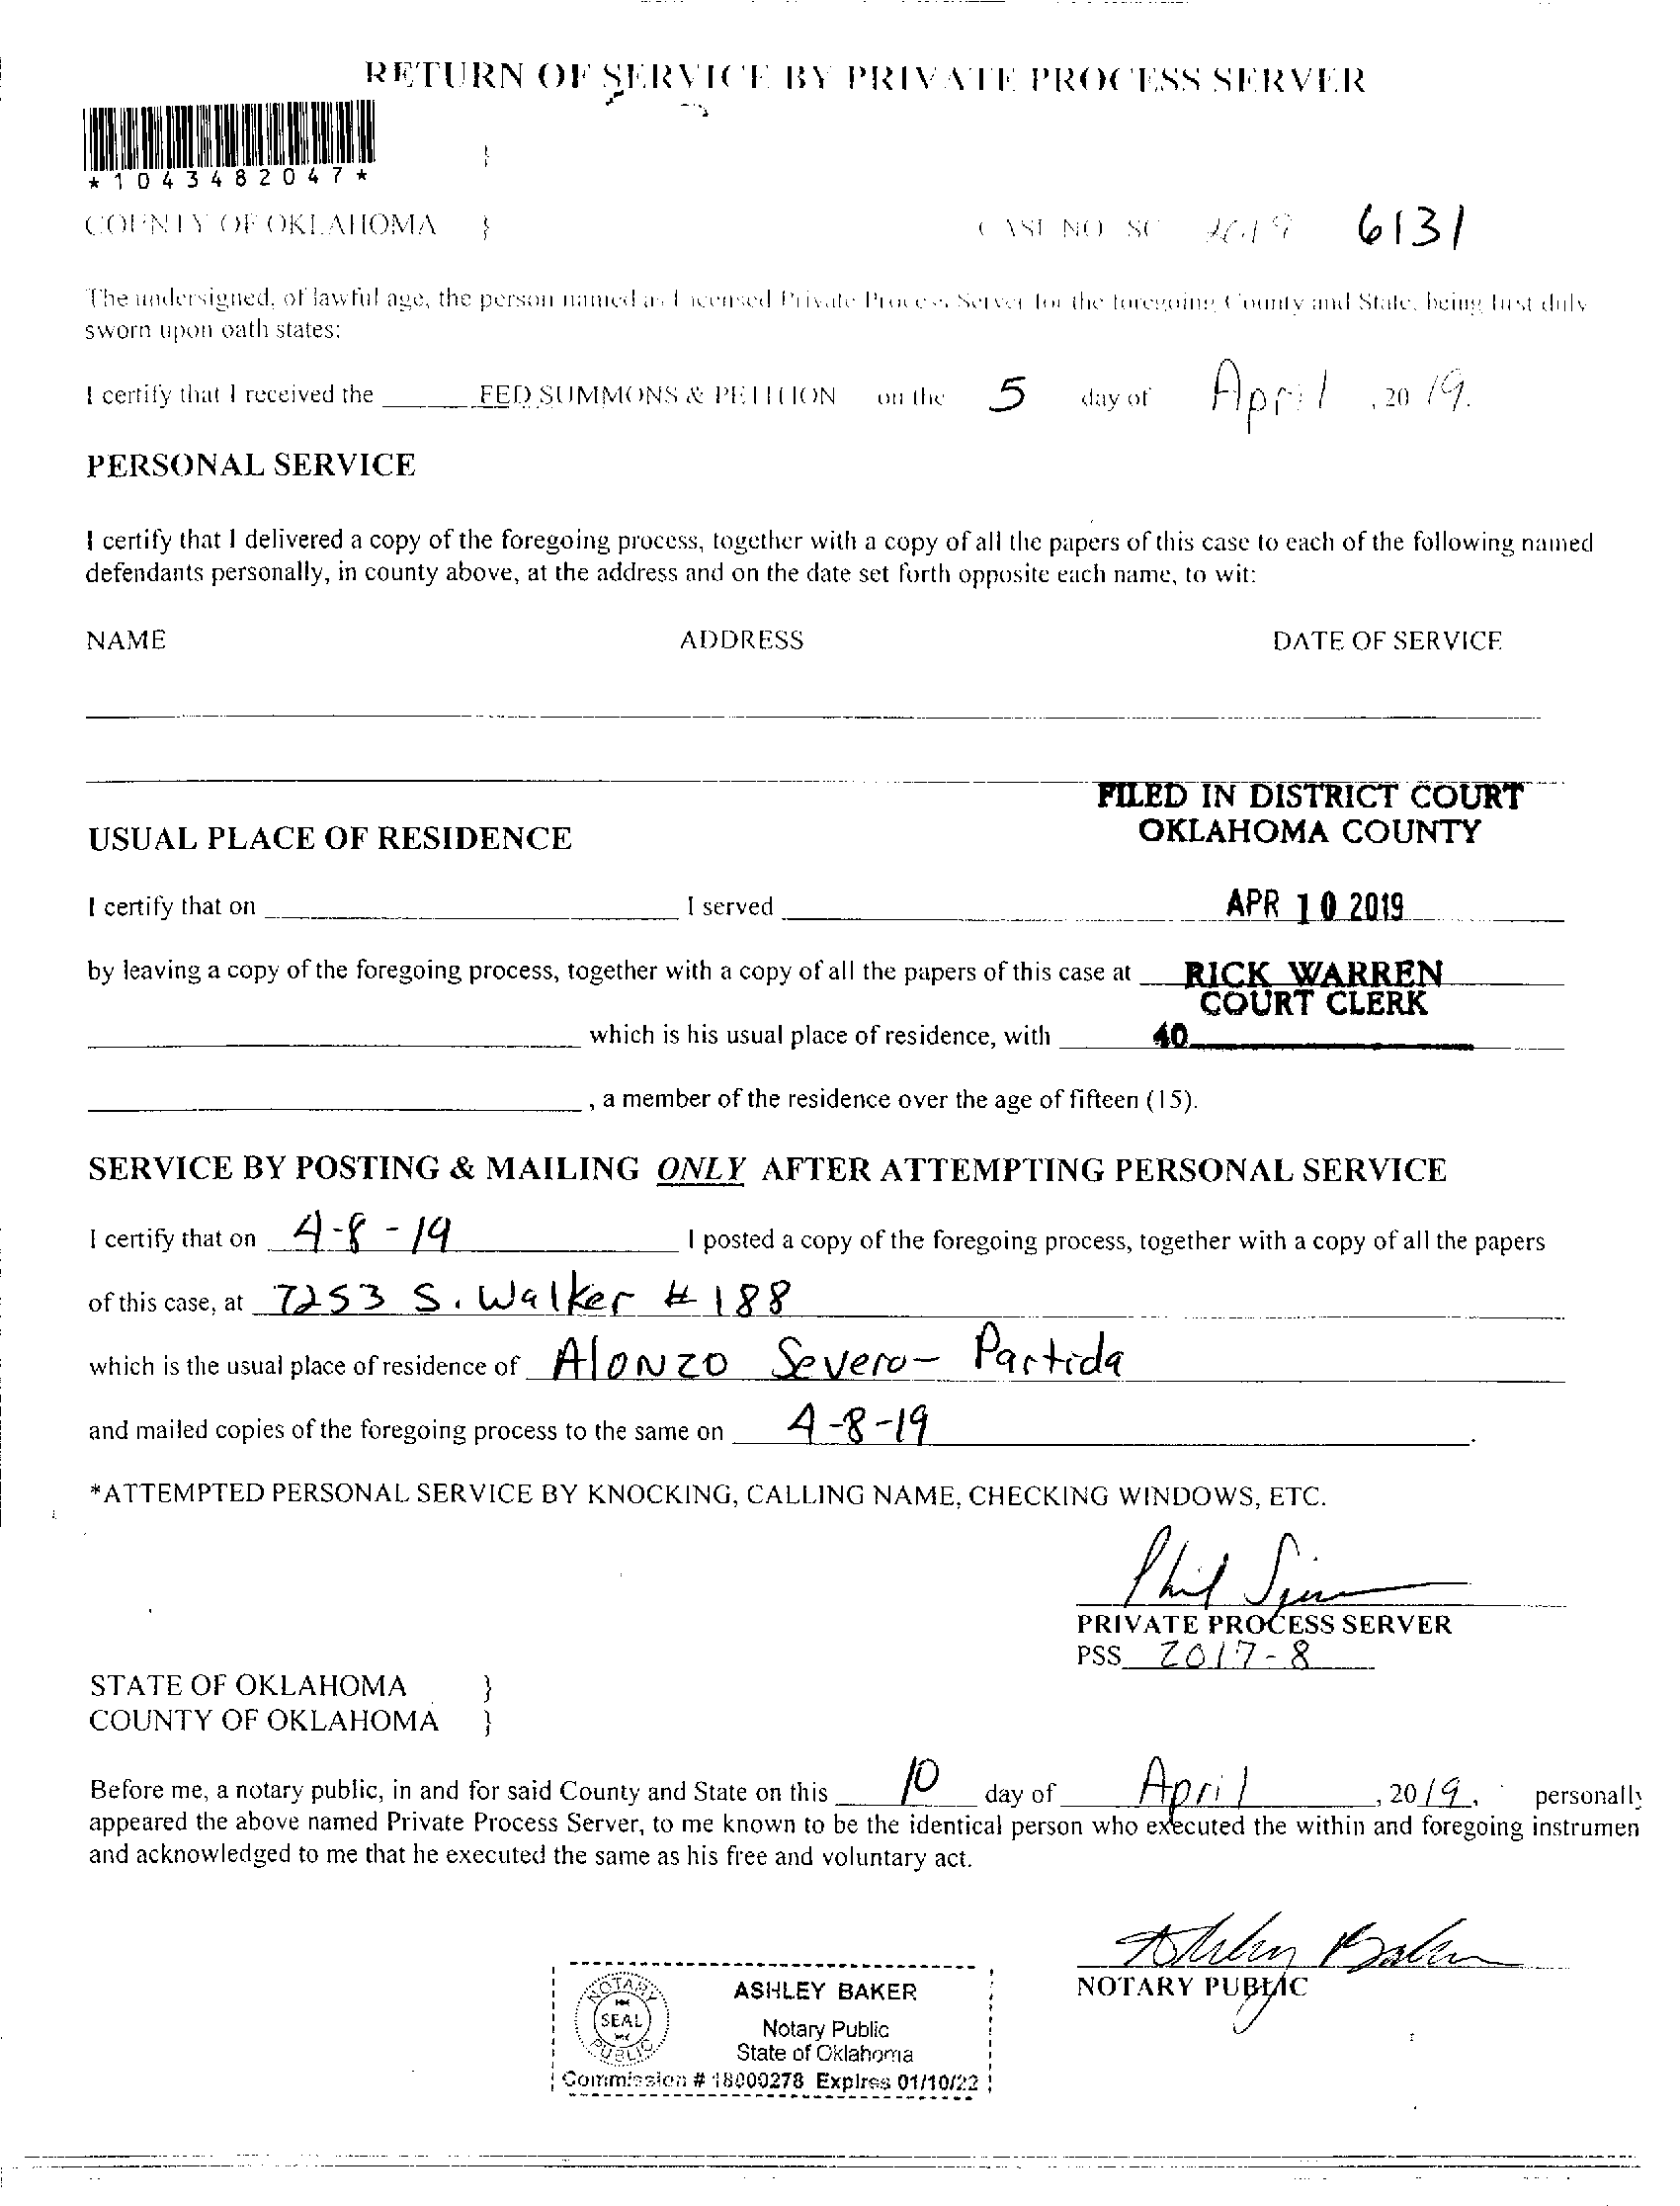 RETURN OF SERVICE BY PRIVATE PROCESS SERVER
*1043482047*
}
COUNTY OF OKLAHOMA } CASE NO SC 2019 6131
The undersigned, of lawful age, the person named as Licensed Private Process Server for the foregoing County and State, being first duly
sworn upon oath states:
I certify that I received the FED SUMMONS & PETITION on the 5 day of April , 20 19.
PERSONAL SERVICE
I certify that I delivered a copy of the foregoing process, together with a copy of all the papers of this case to each of the following named
defendants personally, in county above, at the address and on the date set forth opposite each name, to wit:
NAME ADDRESS DATE OF SERVICE
FILED IN DISTRICT COURT
OKLAHOMA COUNTY
USUAL PLACE OF RESIDENCE
I certify that on I served APR 10 2019
by leaving a copy of the foregoing process, together with a copy of all the papers of this case at RICK WARREN
COURT CLERK
which is his usual place of residence, with 40
, a member of the residence over the age of fifteen (15).
SERVICE BY POSTING & MAILING ONLY AFTER ATTEMPTING PERSONAL SERVICE
I certify that on 4-8-19 I posted a copy of the foregoing process, together with a copy of all the papers
of this case, at 7253 S. Walker # 188
which is the usual place of residence of Alonzo Severo-Partida
and mailed copies of the foregoing process to the same on 4-8-19 .
*ATTEMPTED PERSONAL SERVICE BY KNOCKING, CALLING NAME, CHECKING WINDOWS, ETC.
Phil
PRIVATE PROCESS SERVER
PSS 2017-8
STATE OF OKLAHOMA }
COUNTY OF OKLAHOMA }
Before me, a notary public, in and for said County and State on this 10 day of April , 20 19, personally
appeared the above named Private Process Server, to me known to be the identical person who executed the within and foregoing instrumen
and acknowledged to me that he executed the same as his free and voluntary act.
Ashley Baker
NOTARY PUBLIC
NOTARY SEAL PUBLIC
ASHLEY BAKER
Notary Public
State of Oklahoma
Commission # 18000278 Expires 01/10/22